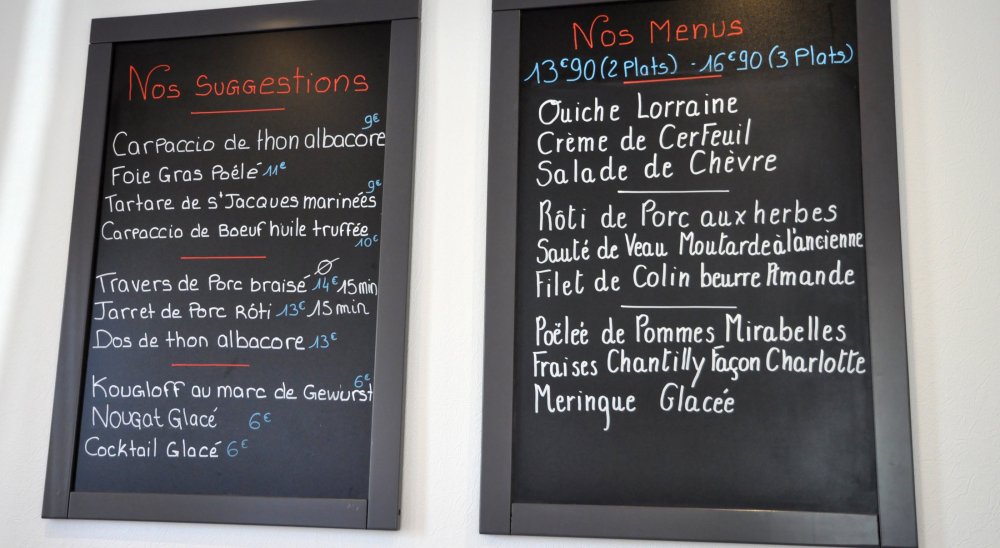 Nos Suggestions
Carpaccio de thon albacore 9€
Foie Gras Poêlé 11€
Tartare de St Jacques marinées 9€
Carpaccio de Boeuf huile truffée 10€
Travers de Porc braisé 14€ 15min
Jarret de Porc Rôti 13€ 15min
Dos de thon albacore 13€
Kougloff au marc de Gewürst 6€
Nougat Glacé 6€
Cocktail Glacé 6€
Nos Menus
13€90 (2 Plats) - 16€90 (3 Plats)
Quiche Lorraine
Crème de Cerfeuil
Salade de Chèvre
Rôti de Porc aux herbes
Sauté de Veau Moutarde à l'ancienne
Filet de Colin beurre Amande
Poëleé de Pommes Mirabelles
Fraises Chantilly Façon Charlotte
Meringue Glacée